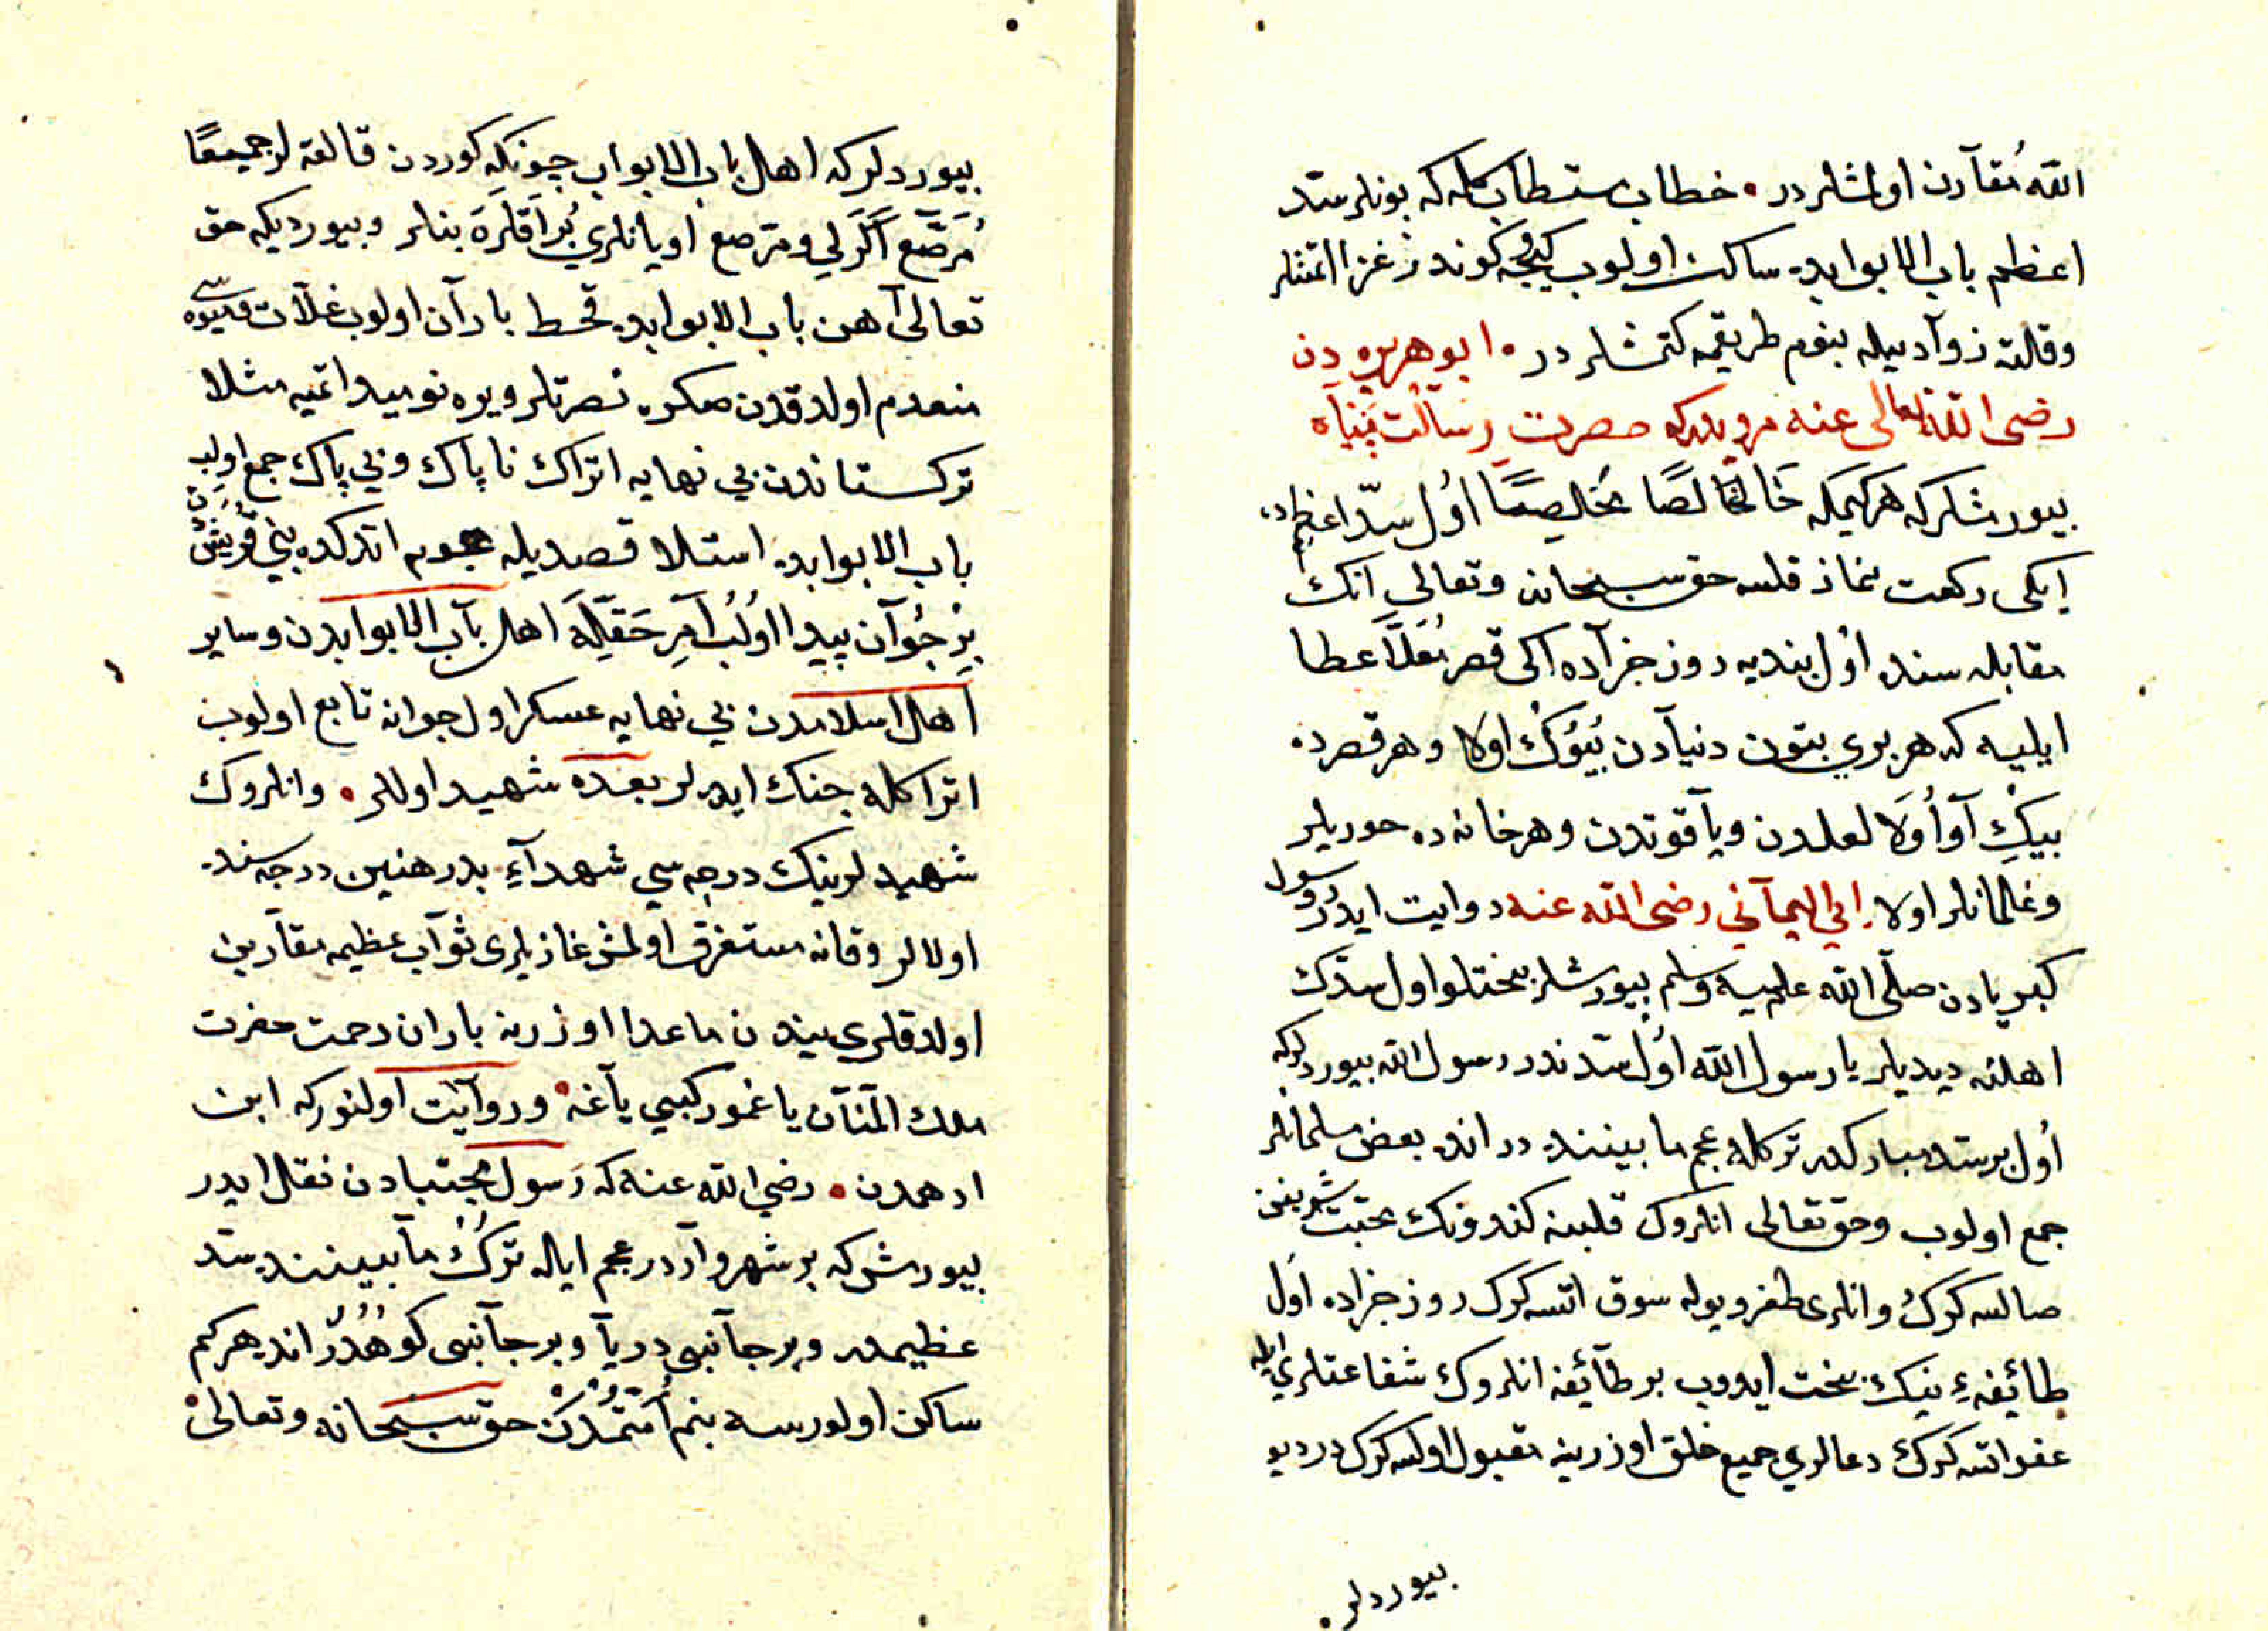 الله مُقآرن اولمشلردر • خطاب مستطاب كله كه بونلر سد
اعظم باب الابوابده ساكن اولوب كيجه و كوندز غزا اتمشلر
وقالقه زوآديله بنوم طريقمه كتمشلر در • ابو هريره دن
رضى الله تعالى عنه مرويدركه حضرت رسالت پناه
بيورمشلر كه هر كيمكه خالصًا مخلصًا اول سدّ اعظمده
ايكى ركعت نماز قلسه حق سبحانه وتعالى انك
مقابله سنده اول بنديه روز جزآده اكى قصر مُعَلَّا عطا
ايليه كه هر برى بتون دنيآدن بُيُوُك اولا و هر قصرده
بيكِ آو اُوَلا لعلدن و يآقوتدن و هر خانه ده حوريلر
و غلمانلر اولا . ابى اليمآنى رضى الله عنه روايت ايدر رسول
كبريادن صلّى الله عليه وسلم بيورمشلر بختلو اول سدّك
اهلنه ديديلر يا رسول الله اول سد ندر رسول الله بيوردلركه
اول بر سد مباركدر تركله عجم مابيننده در انده بعض مسلمانلر
جمع اولوب وحق تعالى انلروك قلبنه كندونك محبت شريفن
صالسه كرك وانلرى ظفر ويوله سوق اتسه كرك روز جزاده اول
طائيفهء نيك بخت ايدوب بر طآئيفه انلروك شفاعتلرى ايله
عفو اتسه كرك دعالرى جميع خلق اوزرينه مقبول اولسه كرك در ديو
بيوردلر •
بيوردلر كه اهل باب الابواب چونكه كوردن قالقه لر جميعًا
مُرَصَّع اَكَرلى و مرصع اويانلرى بُرَاقلَرَه بنلر و بيورديكه حق
تعالى آهن باب الابوابده قحط بارآن اولوب غلّات و ميوه سى
منعدم اولدقدن صكره نصرتلر ويره نوميد اتميه مثلا
تركستاندن بى نهايه اتراك ناپاك و بى پاك جمع اولوب
باب الابوابده استلا قصديله هجوم اتدكده بنى قريشدن
بِرْ جُوآن پيدا اولُب آمرِ حَقيلَه اهل بآب الابوابدن وساير
اهل اسلامدن بى نهايه عسكر اول جوانه تابع اولوب
اتراكله جنك ايدرلر بعده شهيد اولالر • وانلروك
شهيدلرينك درجه سى شهدآءِ بدر هنين درجه سنده
اولالر وقانه مستغرق اولمش غازيلرى ثوآب عظيمه مقآرين
اولدقلرى بيندن ماعدا اوزرينه باران رحمت حضرت
ملك المنّآن ياغمور كبيى يآغه • وروآيت اولنور كه ابن
ادهمدن • رضي الله عنه كه رَسول مجتبادن نقل ايدر
بيورمش كه بر شهر وآردر عجم ايله تُرك مآبيننده سد
عظيمدر و بر جآنبى دريآ و بر جآنبى كوهدُر انده هر كم
ساكن اولورسه بنم اُمّتُمدن حق سبحانه وتعالى